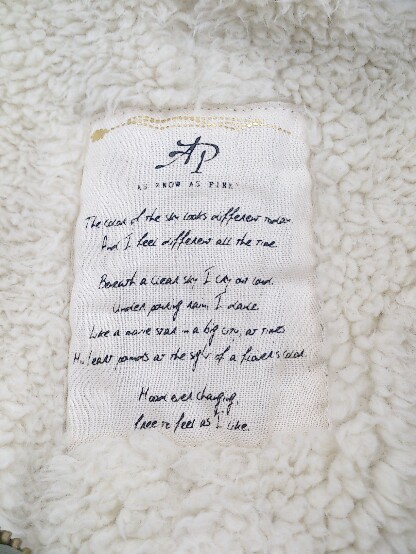 AP
AS KNOW AS PINKY
The color of the sky looks different today
And I feel different all the time.
Beneath a clear sky I cry out loud.
Under pouring rain, I dance.
Like a movie star in a big city, at times
My heart pounds at the sight of a flower's color.
Mood ever changing,
free to feel as I like.